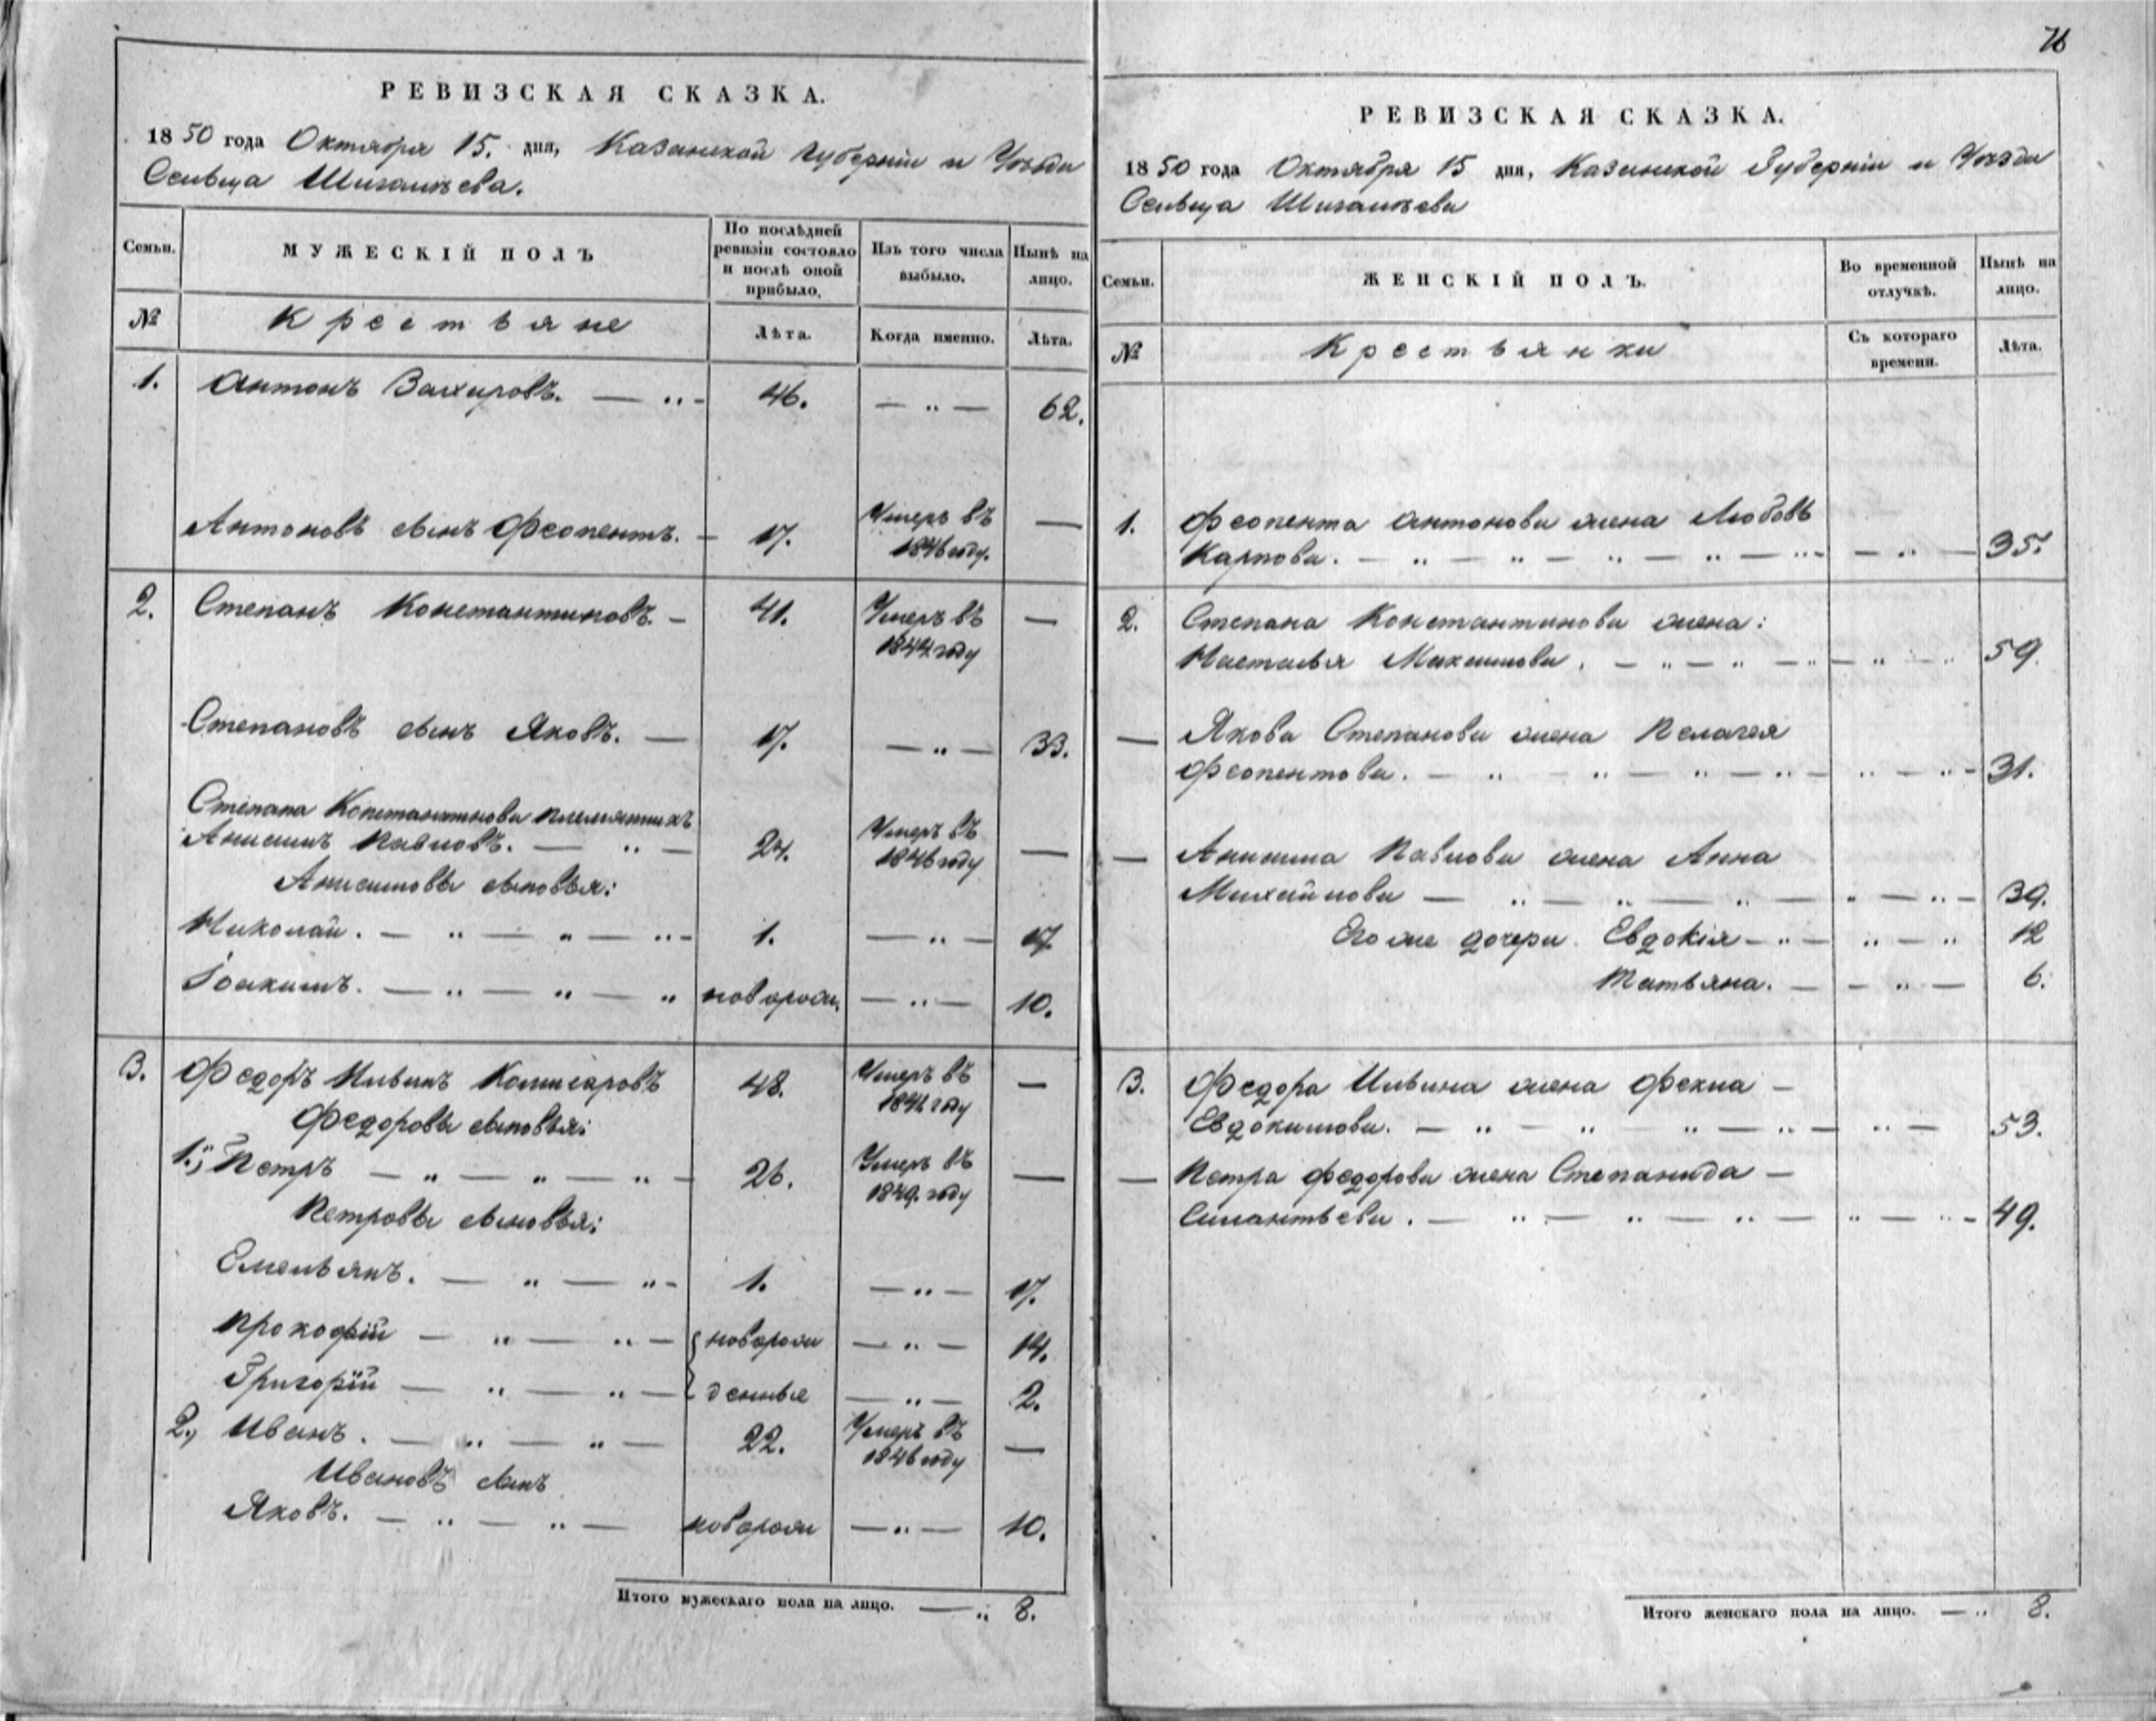 76
РЕВИЗСКАЯ СКАЗКА.
1850 года Октября 15. дня, Казанской губерніи и Уѣзда
Сельца Шигалѣева.
Семьи.
МУЖЕСКІЙ ПОЛЪ
По послѣдней ревизіи состояло и послѣ оной прибыло.
Изъ того числа выбыло.
Нынѣ на лицо.
№
Крестьяне
Лѣта.
Когда именно.
Лѣта.
1. Антонъ Захаровъ. — „ - 46. — „ — 62.
Антоновъ сынъ Феопентъ. - 17. Умеръ въ 1846 году. —
2. Степанъ Константиновъ. - 41. Умеръ въ 1844 году —
Степановъ сынъ Яковъ. — 17. — „ — 33.
Степана Константинова племянникъ
Анисимъ Павловъ. — „ — 24. Умеръ въ 1846 году —
Анисимовы сыновья:
Николай. — „ — „ — „ - 1. — „ — 17.
Іоакимъ. — „ — „ — „ новорож. — „ — 10.
3. Федоръ Ильинъ Комисаровъ 48. Умеръ въ 1841 году —
Федоровы сыновья:
1., Петръ — „ — „ — „ - 26. Умеръ въ 1849. году —
Петровы сыновья:
Емельянъ. — „ — „ - 1. — „ — 17.
Прокофій — „ — „ — новорож — „ — 14.
Григорій — „ — „ — денные — „ — 2.
2., Иванъ. — „ — „ — 22. Умеръ въ 1846 году —
Ивановъ сынъ
Яковъ. — „ — „ — новорож — „ — 10.
Итого мужескаго пола на лицо. — „ 8.
РЕВИЗСКАЯ СКАЗКА.
1850 года Октября 15 дня, Казанской Губерніи и Уѣзда
Сельца Шигалѣева
Семьи.
ЖЕНСКІЙ ПОЛЪ.
Во временной отлучкѣ.
Нынѣ на лицо.
№
Крестьянки
Съ котораго времени.
Лѣта.
1. Феопента Антонова жена Любовь
Карпова. — „ — „ — „ — „ — „ - — „ — 35.
2. Степана Константинова жена:
Настасья Максимова. — „ — „ — „ — „ — „ 59.
— Якова Степанова жена Пелагея
Феопентова. — „ — „ — „ — „ — „ — „ - 31.
— Анисима Павлова жена Анна
Михайлова — „ — „ — „ — „ — 39.
Его же дочери. Евдокія — „ — „ — „ 12
Татьяна. — — „ — 6.
3. Федора Ильина жена Фекла —
Евдокимова. — „ — „ — „ — „ — „ — 53.
— Петра Федорова жена Степанида —
Силантьева. — „ — „ — „ — „ — „ - 49.
Итого женскаго пола на лицо. — „ 8.